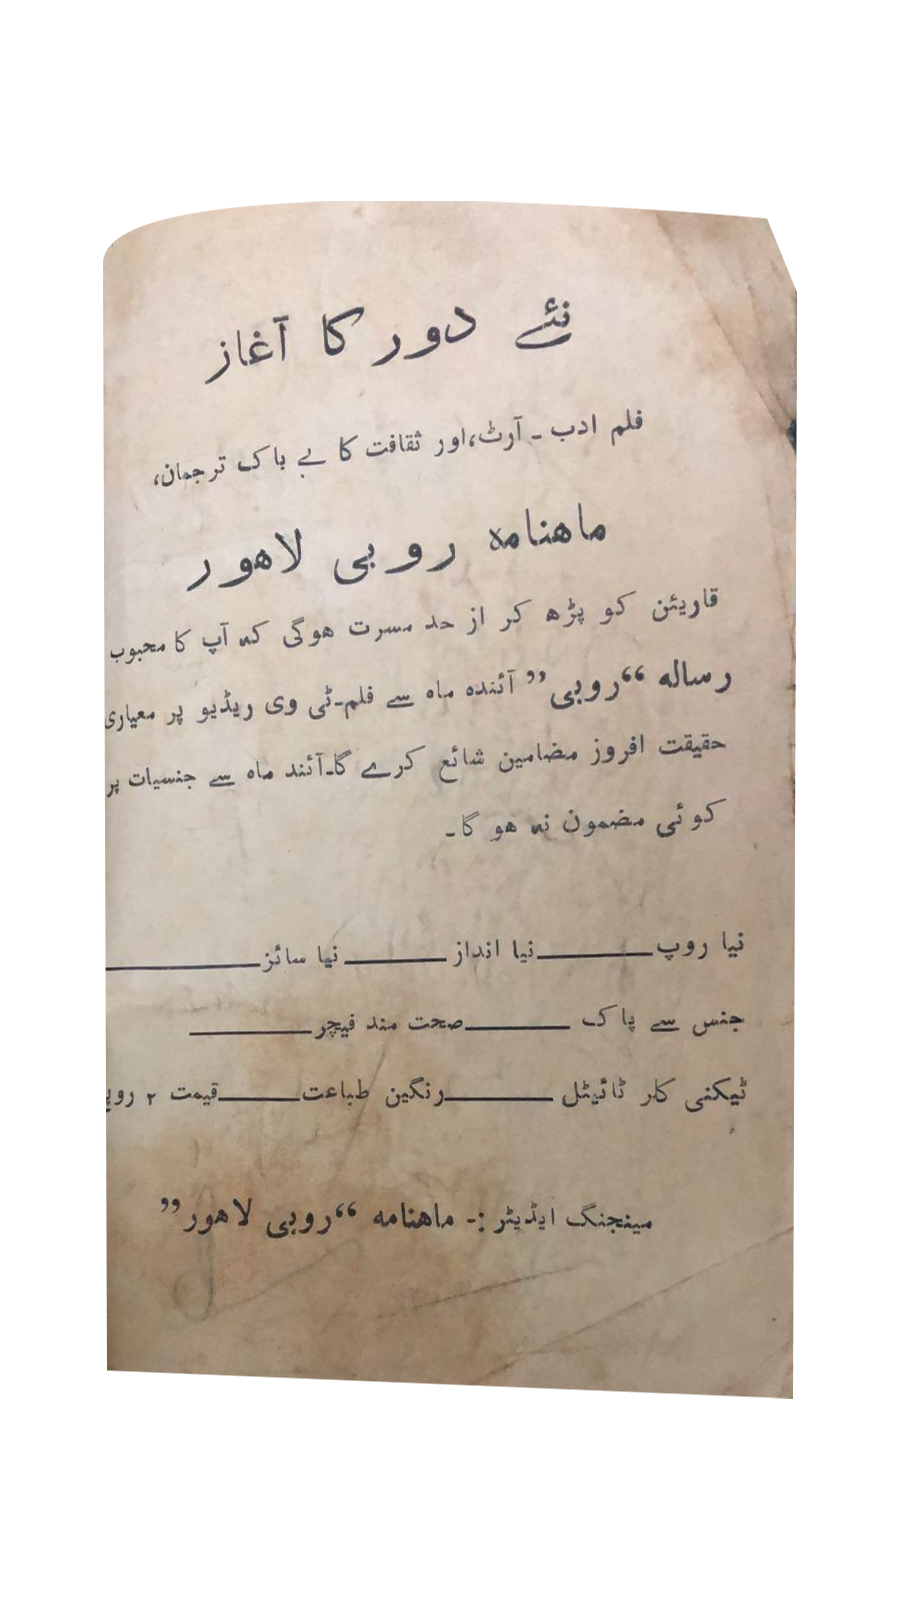 نئے دور کا آغاز
فلم ادب ۔ آرٹ،اور ثقافت کا بے باک ترجمان،
ماهنامه روبی لاهور
قاریئن کو پڑھ کر از حد مسرت هوگی که آپ کا محبوب
رساله “روبی” آئنده ماه سے فلم۔ٹی وی ریڈیو پر معیاری
حقیقت افروز مضامین شائع کرے گا۔آئند ماه سے جنسیات پر
کوئی مضمون نه هو گا۔
نیا روپ ـــــــ نیا انداز ـــــــ نیا سائز ـــــــ
جنس سے پاک ـــــــ صحت مند فیچر ـــــــ
ٹیکنی کلر ٹائیٹل ـــــــ رنگین طباعت ـــــــ قیمت ۲
مینجنگ ایڈیٹر :- ماهنامه “روبی لاهور”